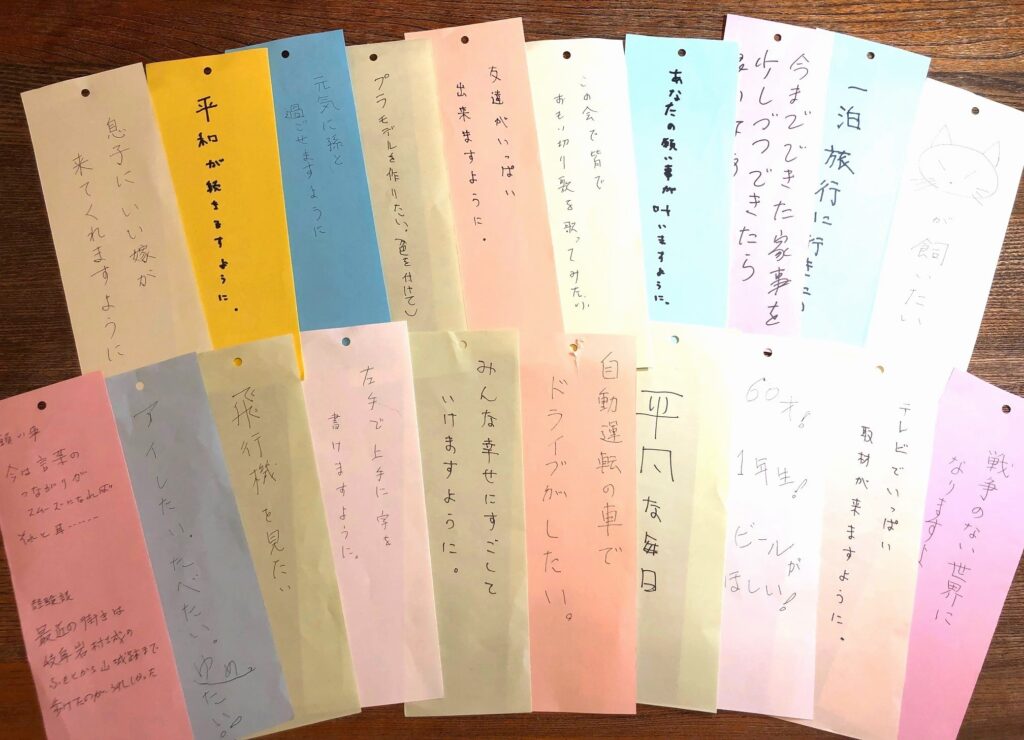 息子にいい嫁が
来てくれますように
平和が続きますように。
元気に孫と
過ごせますように
プラモデルを作りたい。(色を付けて)
友達がいっぱい
出来ますように。
この会で皆で
おもい切り歌を歌ってみたい
あなたの願い事が叶いますように。
今までできた家事を
少しづつできたら
一泊旅行に行きたい
が飼いたい
願い事
今は言葉の
つながりが
スムーズになれれば
それと耳……
経験談
最近の街歩きは
岐阜岩村城の
ふもとから山城跡まで
歩けたのがうれしかった
アイしたい。たべたい。ゆめ
飛行機を見たい
左手で上手に字を
書けますように。
みんな幸せにすごして
いけますように。
自動運転の車で
ドライブがしたい。
平凡な毎日
60才!
1年生!
ビールが
ほしい!
テレビでいっぱい
取材が来ますように。
戦争のない世界に
なりますよ